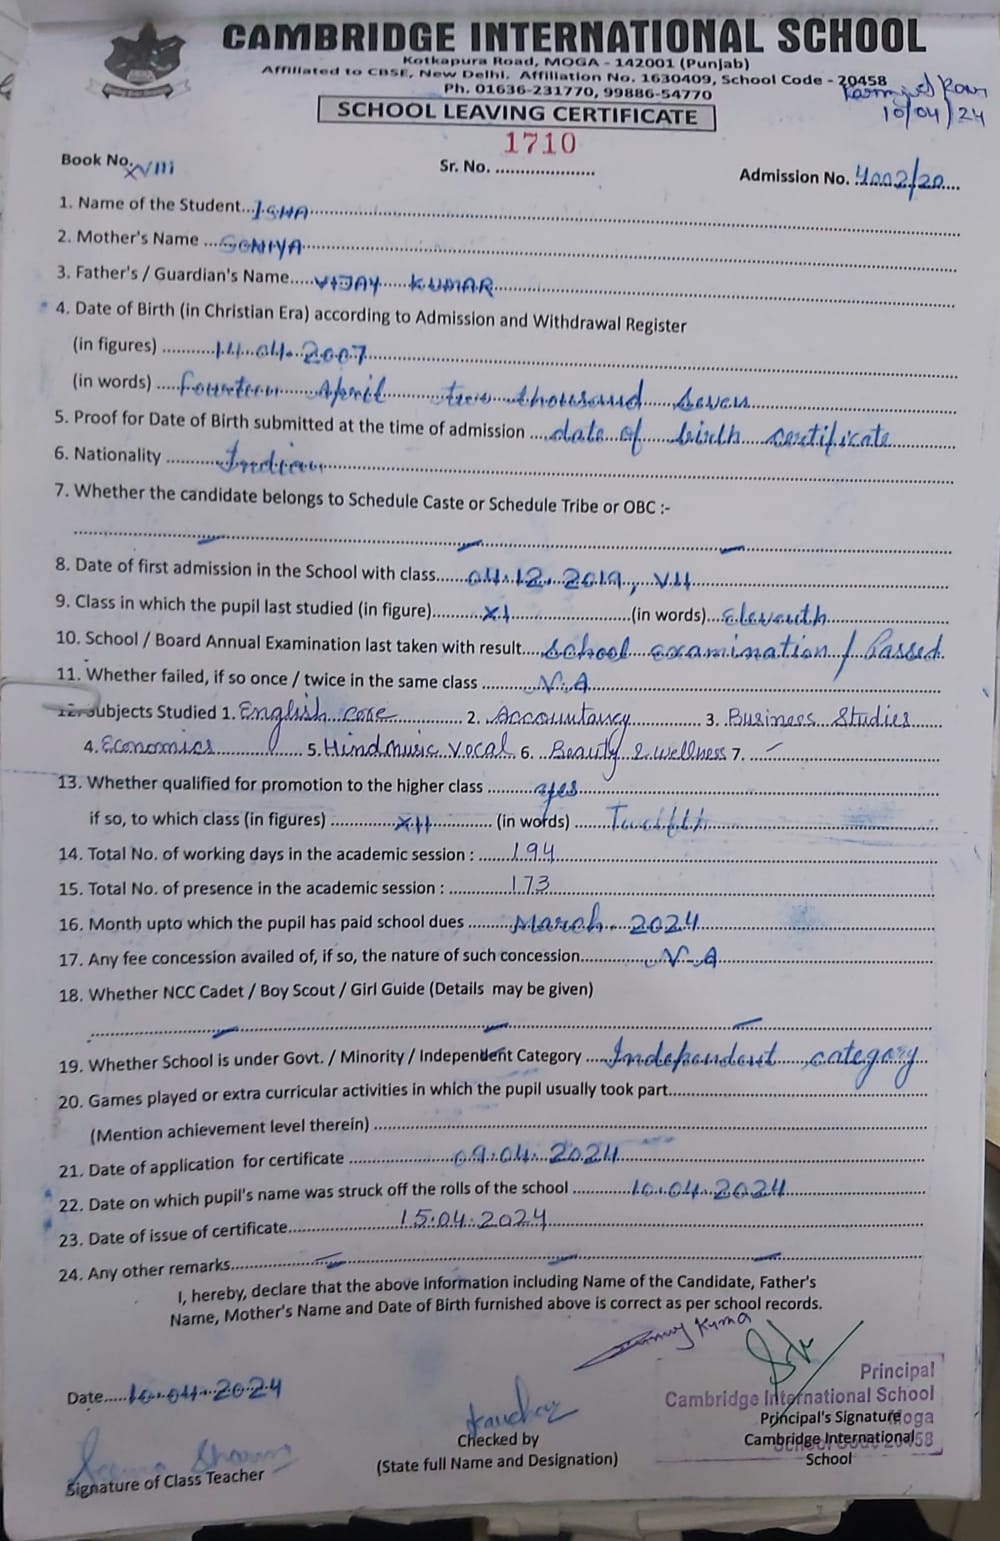 CAMBRIDGE INTERNATIONAL SCHOOL
Kotkapura Road, MOGA - 142001 (Punjab)
Affiliated to CBSE, New Delhi. Affiliation No. 1630409, School Code - 20458
Ph. 01636-231770, 99886-54770
10/04/24
SCHOOL LEAVING CERTIFICATE
Book No. XVIII Sr. No. 1710 Admission No. 4002/20
1. Name of the Student ISHA
2. Mother's Name SONIYA
3. Father's / Guardian's Name VIJAY KUMAR
4. Date of Birth (in Christian Era) according to Admission and Withdrawal Register
(in figures) 14.04.2007
(in words) fourteen April two thousand seven
5. Proof for Date of Birth submitted at the time of admission date of birth certificate
6. Nationality Indian
7. Whether the candidate belongs to Schedule Caste or Schedule Tribe or OBC :-
8. Date of first admission in the School with class 04.12.2019, VII
9. Class in which the pupil last studied (in figure) XI (in words) Eleventh
10. School / Board Annual Examination last taken with result School examination / Passed
11. Whether failed, if so once / twice in the same class N.A
12. Subjects Studied 1. English core 2. Accountancy 3. Business Studies
4. Economics 5. Hind music vocal 6. Beauty & wellness 7. -
13. Whether qualified for promotion to the higher class yes
if so, to which class (in figures) XII (in words) Twelfth
14. Total No. of working days in the academic session : 194
15. Total No. of presence in the academic session : 173
16. Month upto which the pupil has paid school dues March. 2024
17. Any fee concession availed of, if so, the nature of such concession N.A
18. Whether NCC Cadet / Boy Scout / Girl Guide (Details may be given)
19. Whether School is under Govt. / Minority / Independent Category Independent category
20. Games played or extra curricular activities in which the pupil usually took part
(Mention achievement level therein)
21. Date of application for certificate 09.04.2024
22. Date on which pupil's name was struck off the rolls of the school 10.04.2024
23. Date of issue of certificate 15.04.2024
24. Any other remarks
I, hereby, declare that the above information including Name of the Candidate, Father's
Name, Mother's Name and Date of Birth furnished above is correct as per school records.
Kuma
Date 10.04.2024
Principal
Cambridge International School
Moga
School Code 20458
Signature of Class Teacher
Checked by
(State full Name and Designation)
Principal's Signature
Cambridge International
School